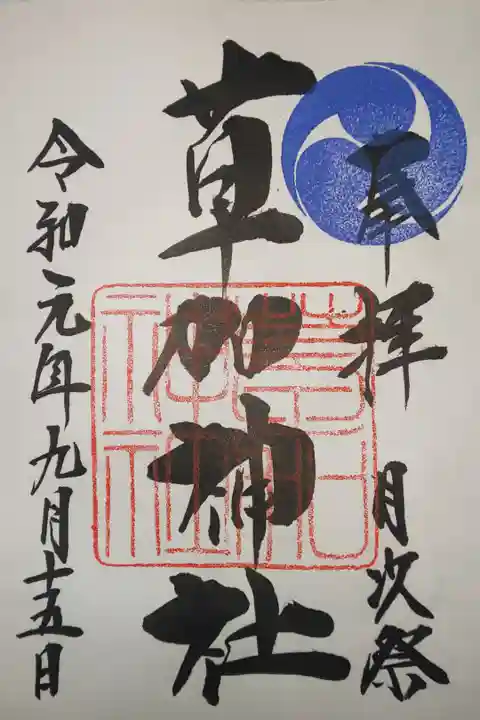 奉拝
月次祭
草加神社
令和元年九月十五日